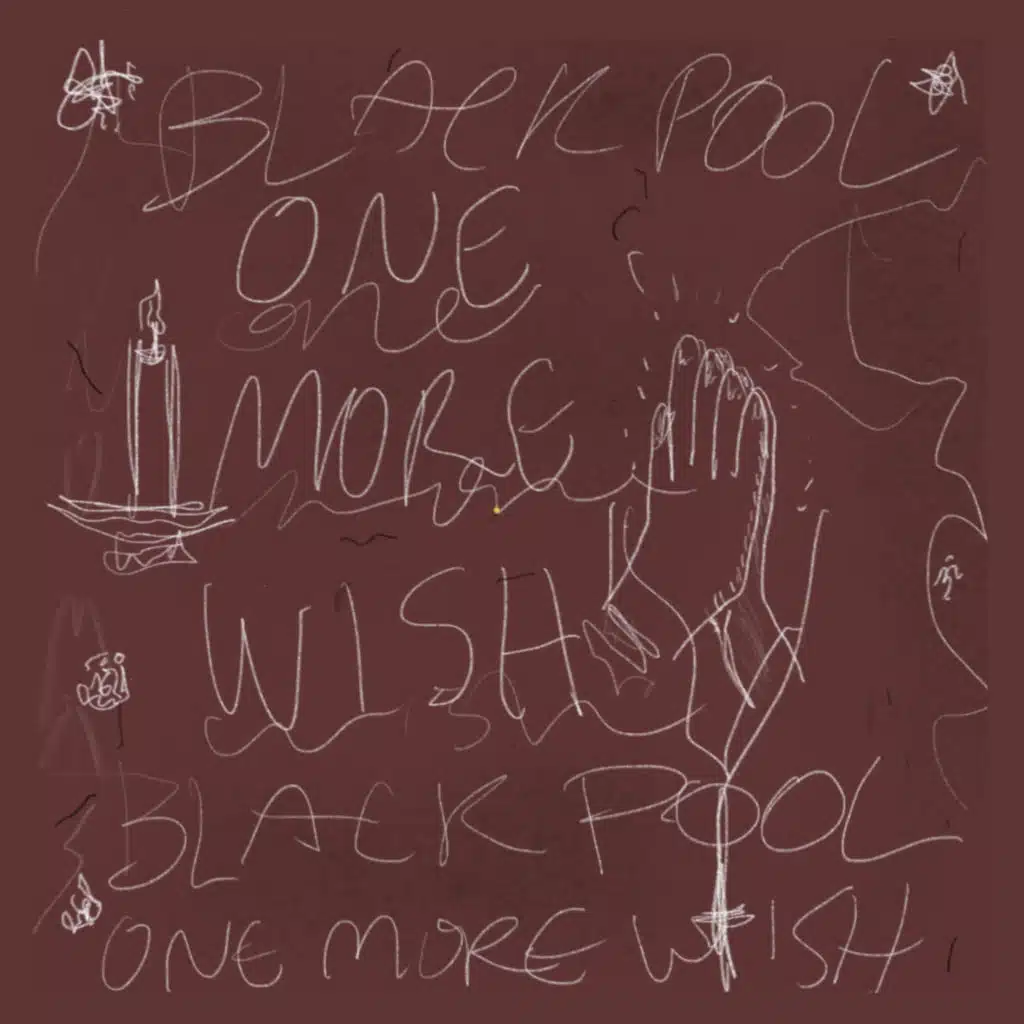 BLACK POOL
ONE
one
MORE
more
WISH
wish
BLACK POOL
ONE MORE WISH